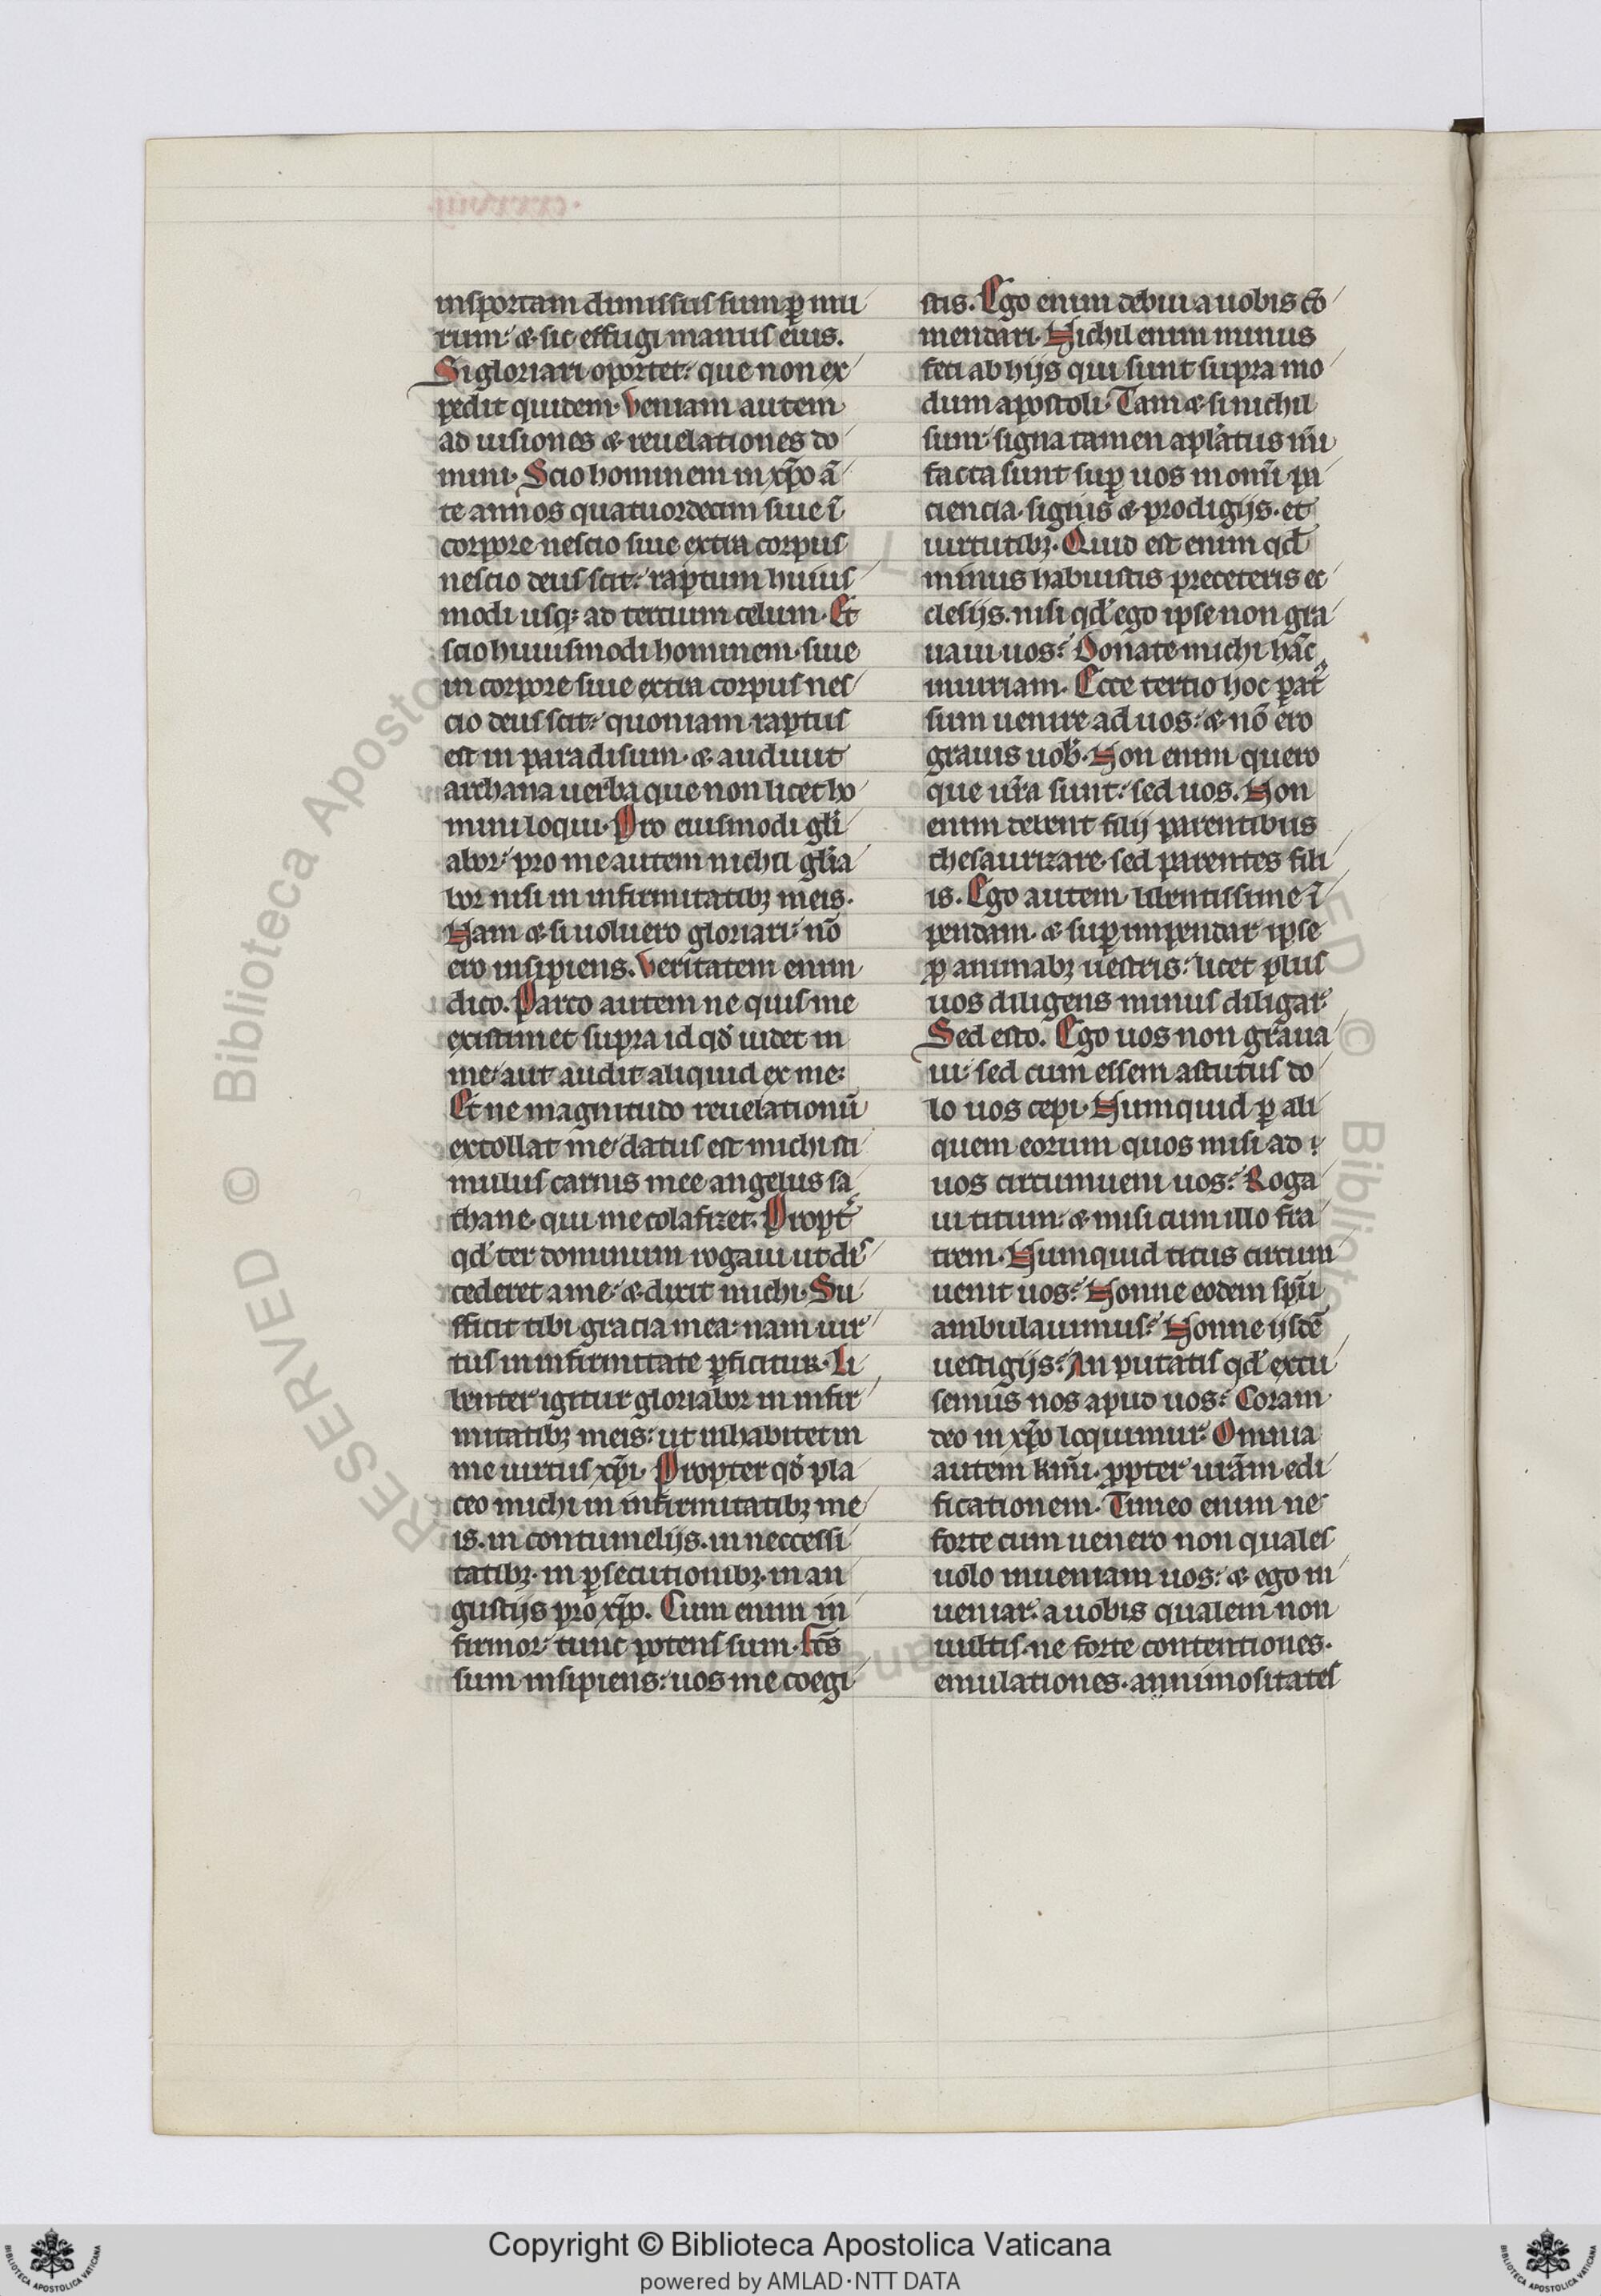 insportam dimissus sum ꝑ mu
rum: & sic effugi manus eius.
Si gloriari oportet: que non ex
pedit quidem. Veniam autem
ad uisiones & reuelationes do
mini. Scio hominem in xp̄o ā
te annos quatuordecim siue ī
corpore nescio siue extra corpus
nescio deus scit: raptum huius
modi usqꝫ ad tercium celum. Et
scio huiusmodi hominem. siue
in corpore siue extra corpus nes
cio deus scit: quoniam raptus
est in paradisum. & audiuit
archana uerba que non licet ho
mini loqui. Pro eiusmodi gl̄i
abor: pro me autem nichil gl̄ia
bor nisi in infirmitatibꝫ meis.
Nam & si uoluero gloriari: nō
ero insipiens. Veritatem enim
dico. Parco autem ne quis me
existimet supra id qd̄ uidet in
me: aut audit aliquid ex me:
Et ne magnitudo reuelationū
extollat me: datus est michi sti
mulus carnis mee angelus sa
thane. qui me colafizet. Propt̄
qd̄ ter dominum rogaui ut dis
cederet a me: & dixit michi. Su
fficit tibi gracia mea: nam uir
tus in infirmitate ꝑficitur. Li
benter igitur gloriabor in infir
mitatibꝫ meis: ut inhabitet in
me uirtus xp̄i. Propter qd̄ pla
ceo michi in infirmitatibꝫ me
is. in contumelijs. in neccessi
tatibꝫ. in ꝑsecutionibꝫ. in an
gustijs pro xp̄o. Cum enim in
firmor: tunc potens sum. Fc̄s
sum insipiens: uos me coegi
stis. Ego enim debui a uobis cō
mendari. Nichil enim minus
feci ab hijs qui sunt supra mo
dum apostoli. Tam & si nichil
sum: signa tamen apl̄atus mī
facta sunt suꝑ uos in omī pa
ciencia. signis & prodigijs. et
uirtutibꝫ. Quid est enim qd̄
minus habuistis preceteris ec
clesijs. nisi qd̄ ego ipse non gra
uaui uos? Donate michi hāc
iniuriam. Ecce tertio hoc parat̄
sum uenire ad uos: & nō ero
grauis uob̄. Non enim quero
que ur̄a sunt: sed uos. Non
enim debent filij parentibus
thesaurizare. sed parentes fili
is. Ego autem libentissime ī
pendam. & suꝑ impendar ipse
ꝓ animabꝫ uestris: licet plus
uos diligens minus diligar:
Sed esto. Ego uos non graua
ui: sed cum essem astutus do
lo uos cepi. Numquid ꝑ ali
quem eorum quos misi ad
uos circumueni uos? Roga
ui titum: & misi cum illo fra
trem. Numquid titus circum
uenit uos? Nonne eodem sp̄u
ambulauimus? Nonne ijsdē
uestigijs? An putatis qd̄ excu
semus nos apud uos? Coram
deo in xp̄o loquimur: Omnia
autem km̄i. ꝓpter ur̄am edi
ficationem. Timeo enim ne
forte cum uenero non quales
uolo inueniam uos: & ego in
ueniar: a uobis qualem non
uultis. ne forte contentiones.
emulationes. animositates
RESERVED © Biblioteca Aposto
© Bibliote
Copyright © Biblioteca Apostolica Vaticana
powered by AMLAD·NTT DATA